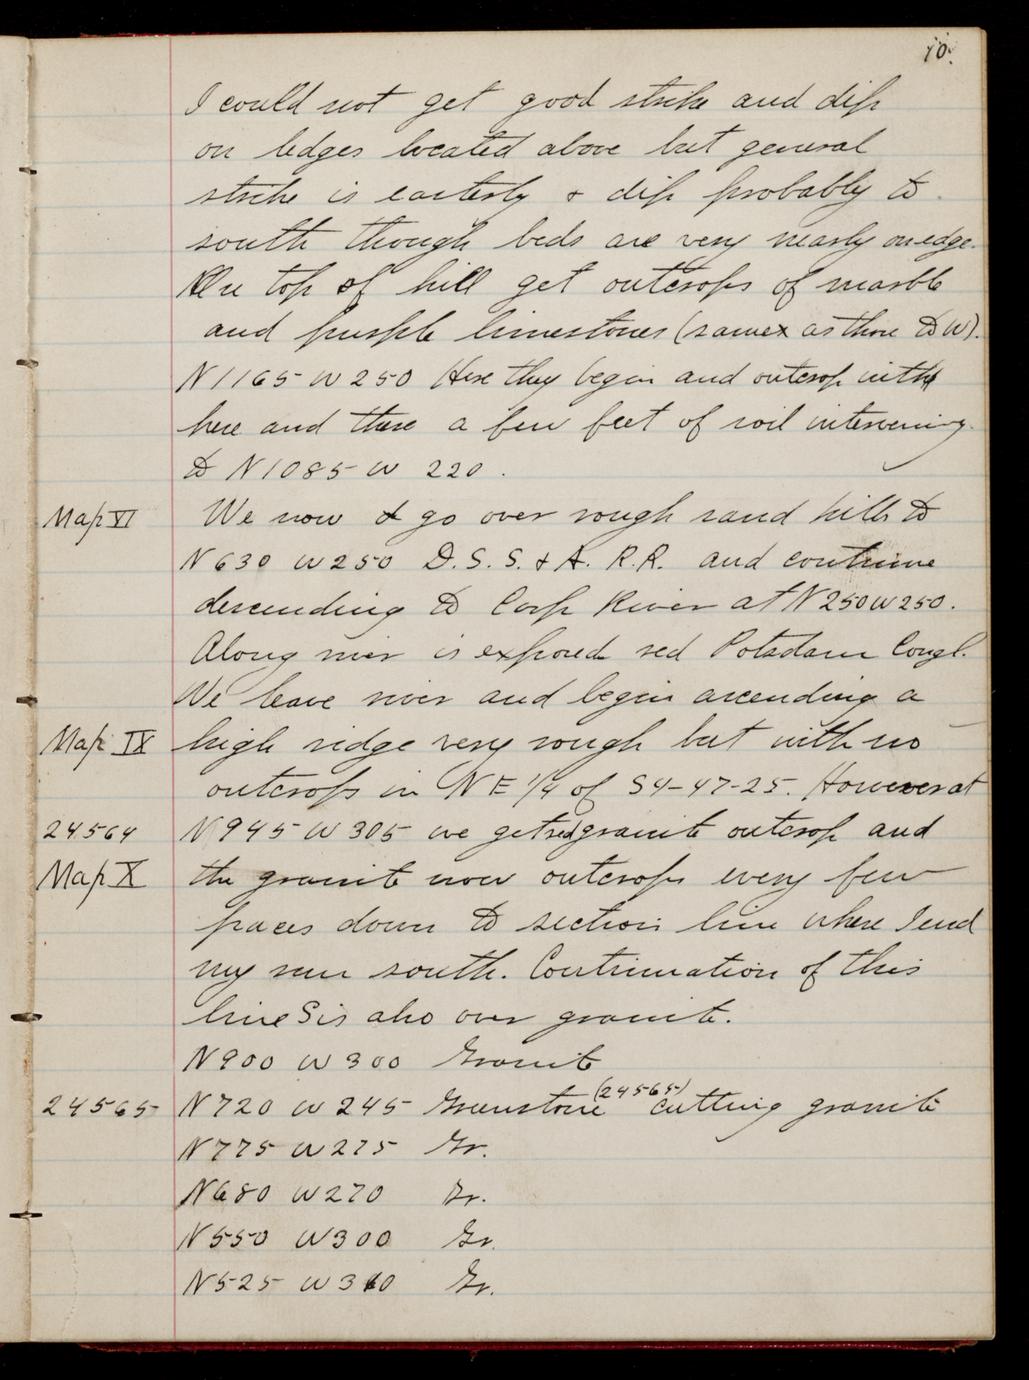 10.
I could not get good strike and dip
on ledges located above but general
strike is easterly & dip probably to
south though beds are very nearly on edge.
On top of hill get outcrops of marble
and purple limestones (same as those to W).
N1165 W250 Here they begin and outcrop with
here and there a few feet of soil intervening
to N1085 W 220.
Map VI We now go over rough sand hills to
N630 W250 D. S. S. & A. R.R. and continue
descending to Carp River at N250 W250.
Along river is exposed red Potsdam Congl.
We leave river and begin ascending a
Map IX high ridge very rough but with no
outcrops in NE 1/4 of S4-47-25. However at
24564 N945 W305 we get red granite outcrop and
Map X the granite now outcrops every few
paces down to section line where I end
my run south. Continuation of this
line S is also over granite.
N900 W300 Granite
24565 N720 W245 Greenstone (24565) cutting granite
N775 W275 Gr.
N680 W270 Gr.
N550 W300 Gr.
N525 W310 Gr.